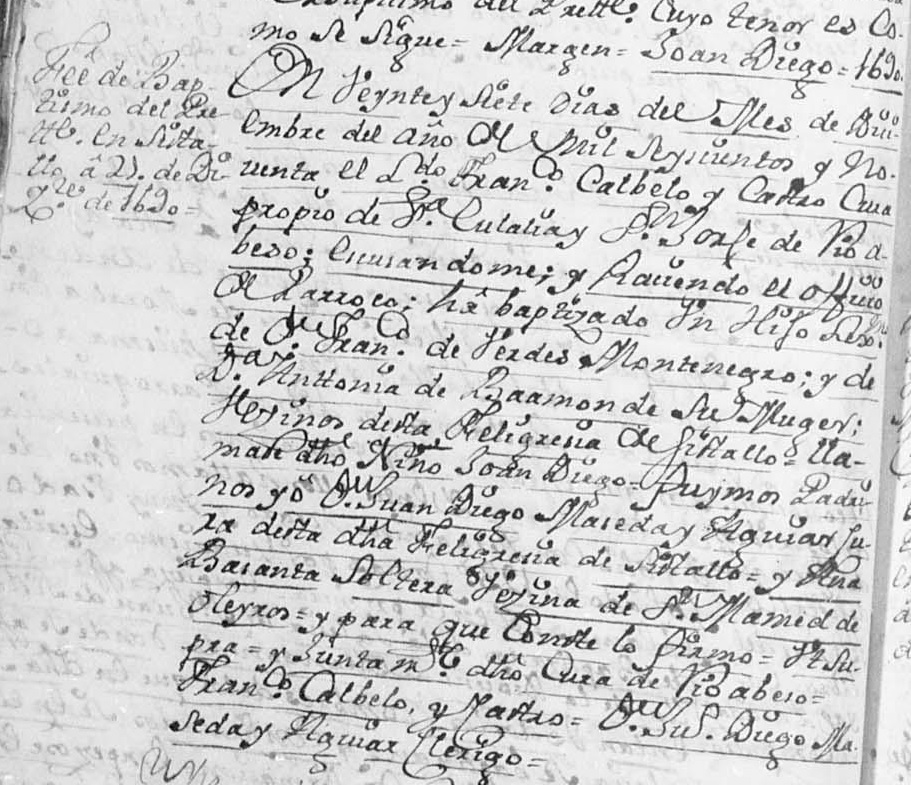 del Prette. Cuyo tenor es Co-
mo se sigue = Margen = Joan Diego = 1690.
Feé de Bap-
tismo del Pre-
tte. en Sista-
llo â 27. de Di-
zre. de 1690=
En Veynte y Siete Dias del Mes de Dizi-
embre del año de Mil Seysientos y No-
venta el Ldo. Fran.co Calbelo y Castro Cura
propio de Sta. Eulalia y S.n Jorje de Rio a-
beso; escusandome; y haciendo el offizio
de Parroco; hâ baptizado Vn Hijo Lexmo.
de Dn. Fran.co de Verdes Montenegro; y de
Da. Anttonia de Baamonde Su Muger;
Vezinos desta Feligresia de Sistallo= lla-
mase dho Niño Joan Diego= fuymos Padri-
nos yó Dn. Juan Diego Maseda y Aguiar Cu-
ra desta dha Feligresia de Sistallo= y Ana
Basanta Soltera Vezina de Sn. Mamed de
Oleyros= y para que Conste lo firmo= Vt Su-
pra= y Juntamte. dho Cura de Rio abeso=
Fran.co Calbelo, y Castro= Dn. Jun. Diego Ma-
seda y Aguiar Clerigo=